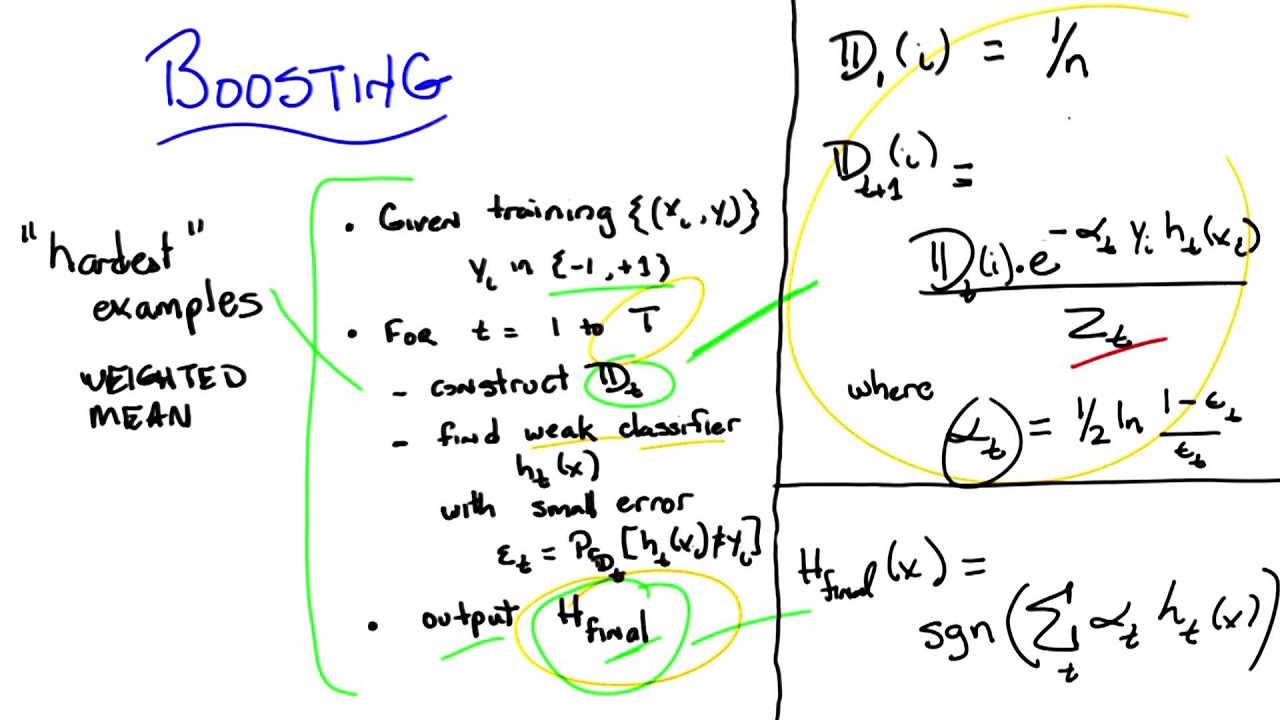 BOOSTING
"hardest"
examples
WEIGHTED
MEAN
• Given training {(xᵢ, yᵢ)}
yᵢ in {-1, +1}
• For t = 1 to T
- construct 𝔻ₜ
- find weak classifier
hₜ(x)
with small error
εₜ = P𝔻ₜ [hₜ(xᵢ)≠yᵢ]
• output H_final
𝔻₁(i) = 1/n
𝔻ₜ₊₁(i) =
𝔻ₜ(i)·e^(-αₜ yᵢ hₜ(xᵢ))
Zₜ
where αₜ = 1/2 ln (1-εₜ)/εₜ
H_final(x) =
sgn(∑ₜ αₜ hₜ(x))